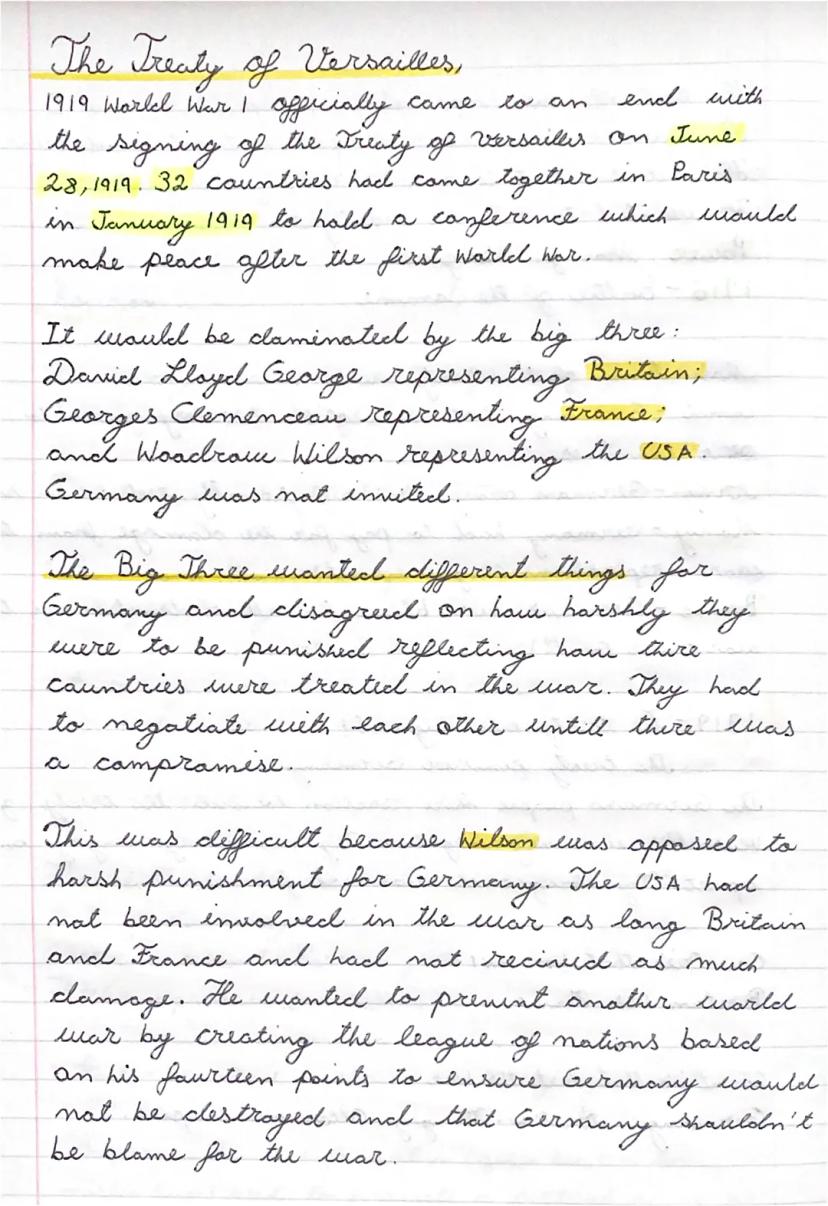 The Treaty of Versailles,
1919 World War 1 officially came to an end with
the signing of the Treaty of Versailles on June
28, 1919. 32 countries had come together in Paris
in January 1919 to hold a conference which would
make peace after the first World War.
It would be dominated by the big three:
David Lloyd George representing Britain;
Georges Clemenceau representing France;
and Woodrow Wilson representing the USA.
Germany was not invited.
The Big Three wanted different things for
Germany and disagreed on how harshly they
were to be punished reflecting how thire
countries were treated in the war. They had
to negotiate with each other untill there was
a compromise.
This was difficult because Wilson was opposed to
harsh punishment for Germany. The USA had
not been involved in the war as long Britain
and France and had not recived as much
damage. He wanted to prevent another world
war by creating the league of nations based
on his fourteen points to ensure Germany would
not be destroyed and that Germany shouldn't
be blame for the war.